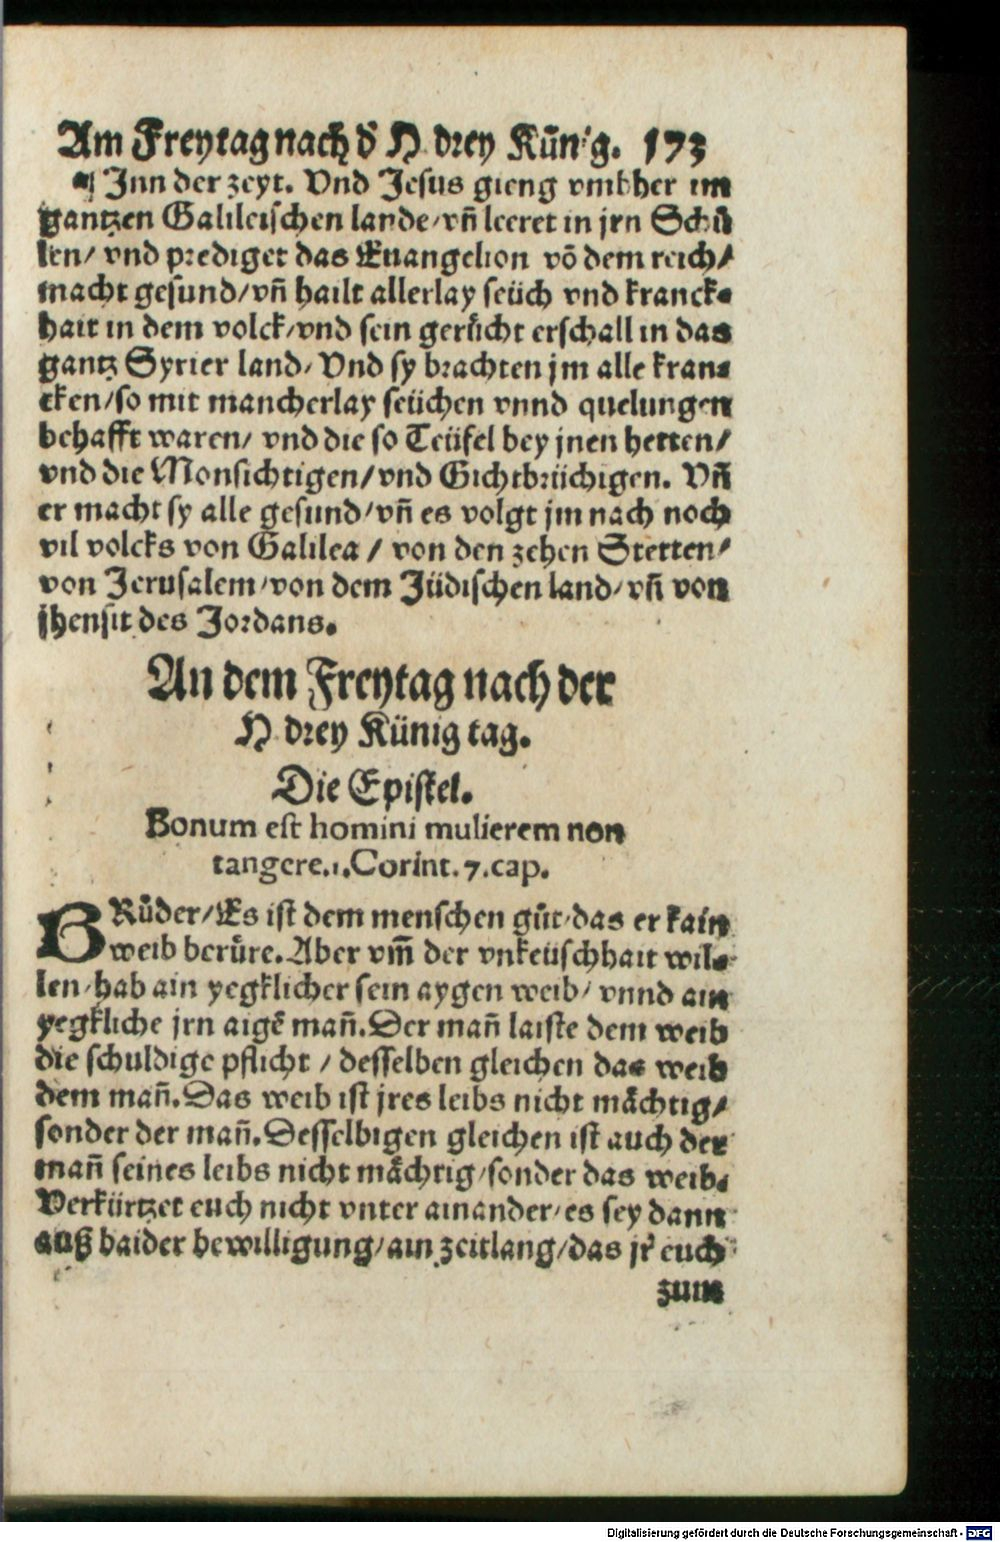 Am Freytag nach d̕ H. drey Künig. 173
¶ Inn der zeyt. Vnd Jesus gieng vmbher im
gantzen Galileischen lande/vñ leeret in jrn Schů
len/ vnd prediget das Euangelion võ dem reich/
macht gesund/vñ hailt allerlay seüch vnd kranck⸗
hait in dem volck/vnd sein gerücht erschall in das
gantz Syrier land/ Vnd sy brachten jm alle kran⸗
cken/so mit mancherlay seüchen vnnd quelungen
behafft waren/ vnd die so Teüfel bey jnen hetten/
vnd die Monsichtigen/vnd Gichtbrüchigen. Vñ
er macht sy alle gesund/vñ es volgt jm nach noch
vil volcks von Galilea / von den zehen Stetten/
von Jerusalem/von dem Jüdischen land/vñ von
jhensit des Jordans.
An dem Freytag nach der
H. drey Künig tag.
Die Epistel.
Bonum est homini mulierem non
tangere.1.Corint.7.cap.
BRůder/Es ist dem menschen gůt/das er kain
weib berůre.Aber vm̃ der vnkeüschhait wil⸗
len/hab ain yegklicher sein aygen weib/ vnnd ain
yegkliche jrn aigẽ mañ.Der mañ laiste dem weib
die schuldige pflicht / desselben gleichen das weib
dem mañ.Das weib ist jres leibs nicht mächtig/
sonder der mañ.Desselbigen gleichen ist auch der
mañ seines leibs nicht mächtig/sonder das weib.
Verkürtzet euch nicht vnter ainander/es sey dann
auß baider bewilligung/ain zeitlang/das jr̕ euch
zum
Digitalisierung gefördert durch die Deutsche Forschungsgemeinschaft - DFG